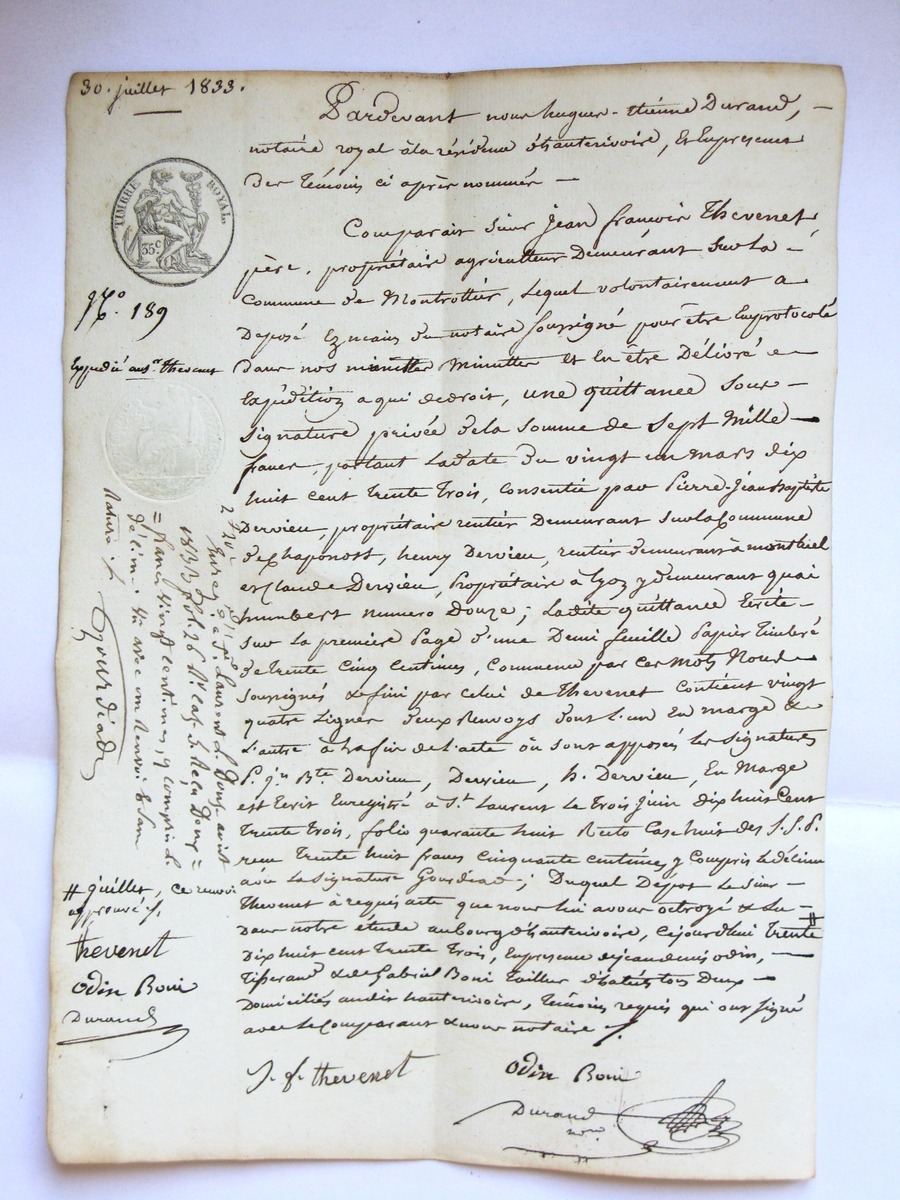 30. juillet 1833.
Pardevant nous hugues-étienne Durand,
notaire royal à la résidence d'hauterivoire, Et En présence
Des témoins ci après nommés
TIMBRE ROYAL.
35 c
Comparait sieur Jean françois Thevenet
père, propriétaire agriculteur Demeurant Sur La
Commune de Montrottier, Lequel volontairement a
Nº. 189
Deposé Ez mains du notaire soussigné pour être Emprotocolé
Expedié au sr. thevenet
Dans nos minutes Et En être Délivré
Expédition a qui de droit, une quittance sous
Signature privée de la somme de Sept Mille
francs, portant La date du vingt un mars dix
huit cent trente trois, Consentie par Pierre-Jean Baptiste
Dervieu, propriétaire rentier Demeurant sur la Commune
de chaponost, henry Dervieu, rentier demeurant à montluel
et claude Dervieu, Propriétaire à Lyon y demeurant quai
humbert numero Douze; Ladite quittance Ecrite
Sur La première Page d'une Demi feuille Papier Timbré
de trente Cinq Centimes, Commence par Ces mots Nous
Soussignés & fini par celui de Thevenet Contient vingt
quatre Lignes deux Renvoys dont l'un En marge &
L'autre à la fin de l'acte où sont apposés les signatures
P. Jn. Bte. Dervieu, Dervieu, h. Dervieu, En Marge
est Ecrit Enregistré à St. Laurent Le Trois Juin dix huit Cent
trente trois, folio quarante huit Recto Case huit des S.S.P.
reçu trente huit francs Cinquante centimes y Compris Le décime
avec La signature Gourdiad; Duquel Dépot Le Sieur
Thevenet à requis acte que nous lui avons octroyé & Lu
Dans notre étude au bourg d'hauterivoire, Cejourd'hui trente #
Dix huit cent trente trois, En présence de jean denis odin,
Tisserand & de Gabriel Boni Tailleur d'habits tous Deux
Domiciliés audit hauterivoire, Témoins requis qui ont signé
avec Le Comparant & nous notaire
# juillet, ce renvoi
approuvé
thevenet
odin Boni
Durand
J. f. thevenet
odin Boni
Durand
nre
St. Laurent Le Douze août
1833 fol. 26 Reçu Deux
francs vingt centimes, y compris le
décime. avec un Renvoi
Gourdiad